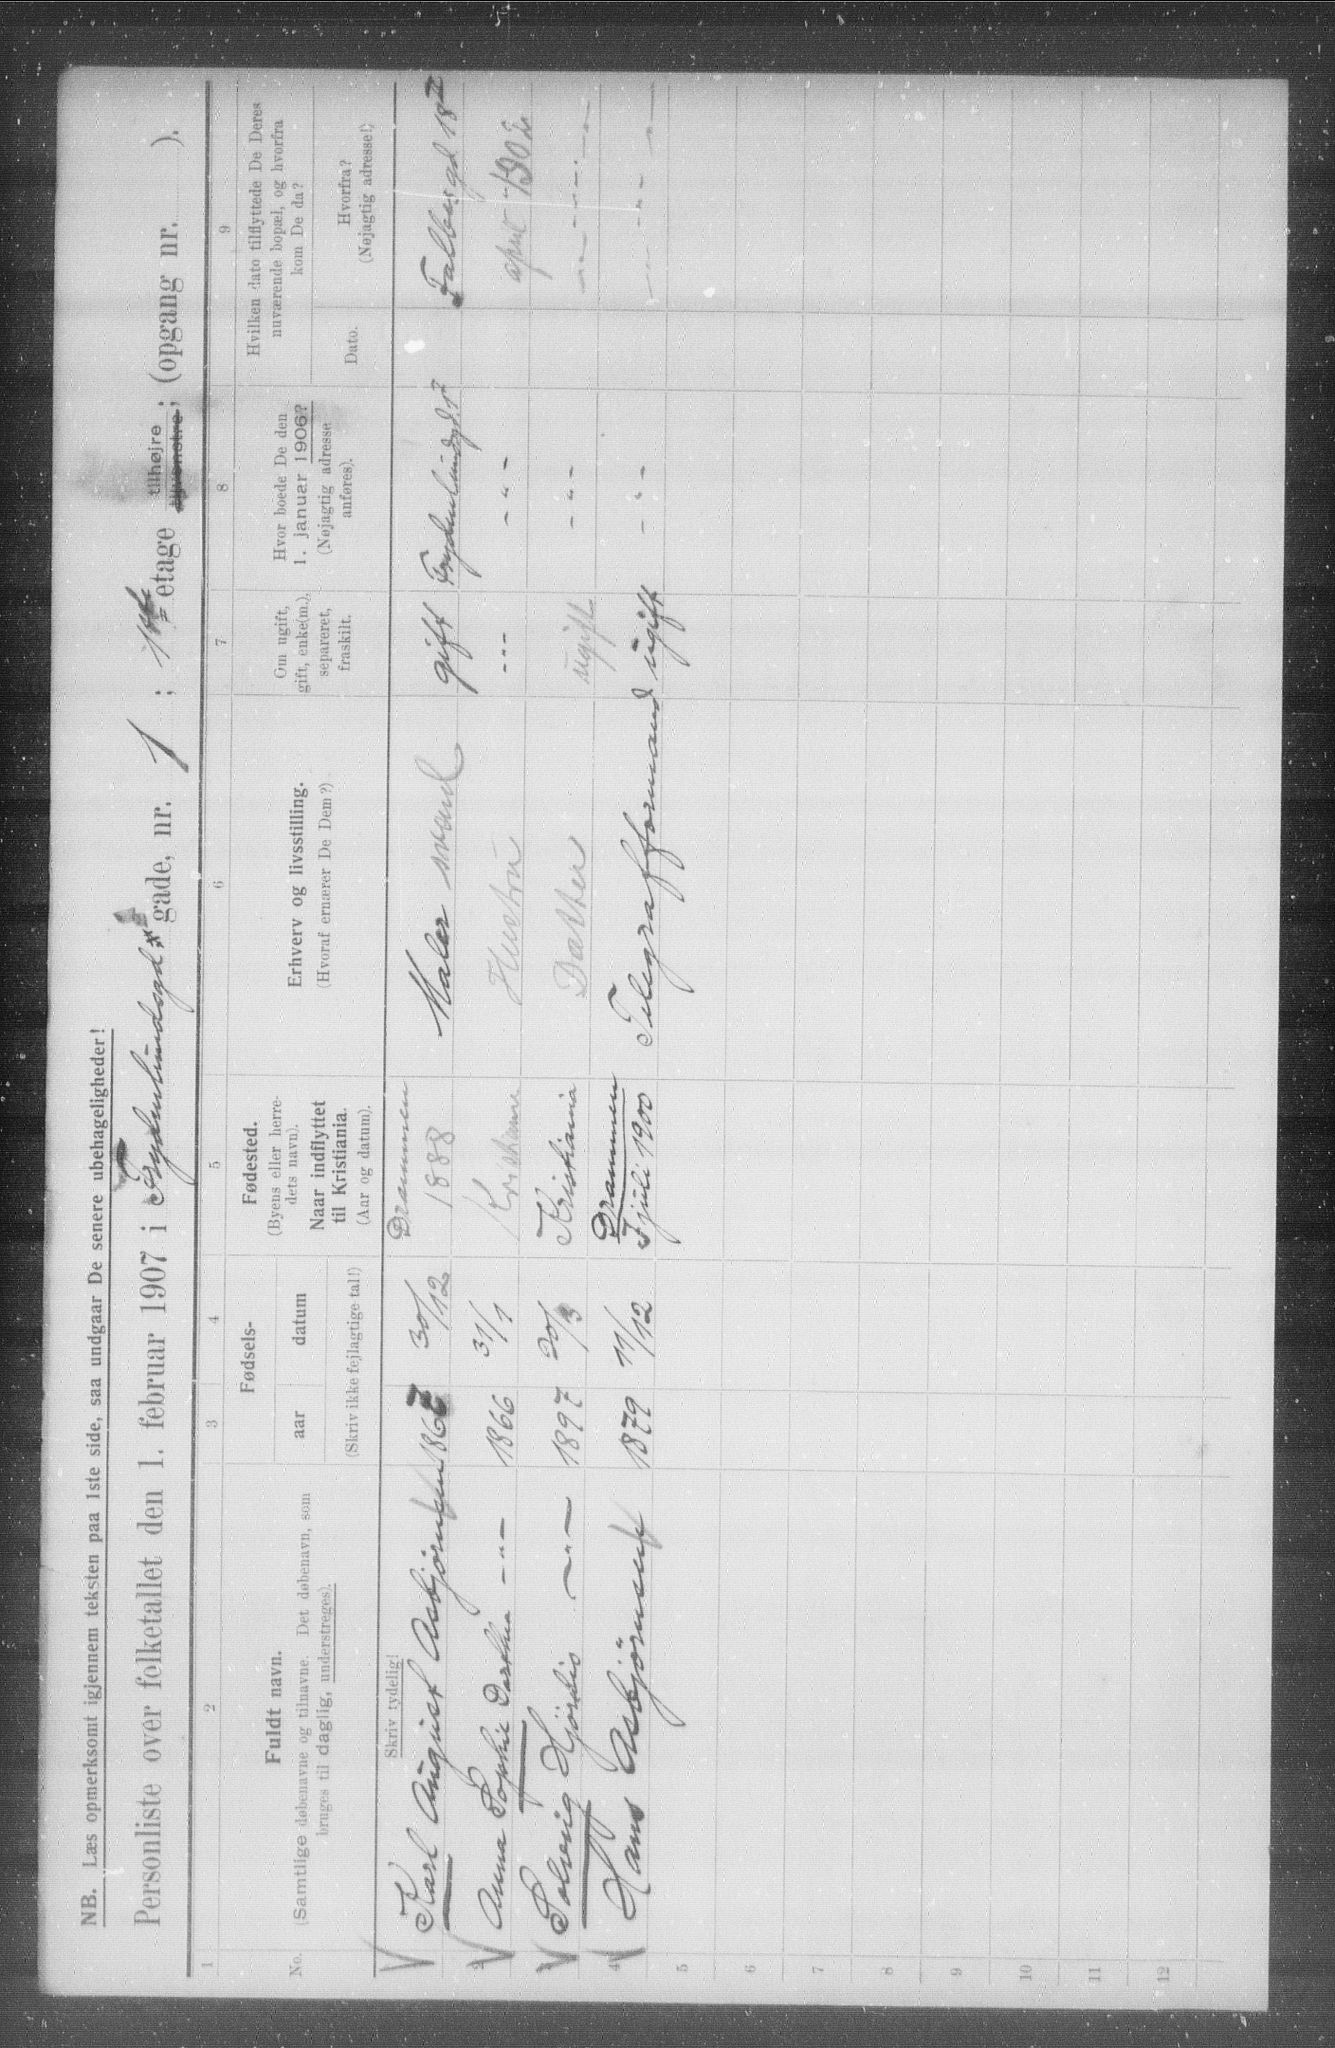 NB. Læs opmerksomt igjennem teksten paa 1ste side, saa undgaar De senere ubehageligheder!
Personliste over folketallet den 1. februar 1907 i Frydenlundsgd gade, nr. 1 ; 1ste etage tilhøjre tilvenstre; (opgang nr. ).
1 2 3 4 5 6 7 8 9
No.
Fuldt navn.
(Samtlige døbenavne og tilnavne. Det døbenavn, som
bruges til daglig, understreges).
Fødsels-
aar datum
(Skriv ikke fejlagtige tal!)
Fødested.
(Byens eller herre-
dets navn).
Naar indflyttet
til Kristiania.
(Aar og datum).
Erhverv og livsstilling.
(Hvoraf ernærer De Dem?)
Om ugift,
gift, enke(m.),
separeret,
fraskilt.
Hvor boede De den
1. januar 1906?
(Nøjagtig adresse
anføres).
Hvilken dato tilflyttede De Deres
nuværende bopæl, og hvorfra
kom De da?
Dato.
Hvorfra?
(Nøjagtig adresse!)
Skriv tydelig!
Karl August Asbjørnsen 1867 30/12 Drammen 1888 Maler svend gift Frydenlundsgd. 1 Falbergd 18
2 Anna Sophie - " - 1866 31/1 Kristiania Hustru - " - - " - april 1902
Solveig Hjørdis - " - 1897 20/3 Kristiania Datter ugift - " - - " -
4 Hans Asbjørnsen 1879 11/12 Drammen juli 1900 Telegrafformand ugift - " - - " -
5
6
7
8
9
10
11
12